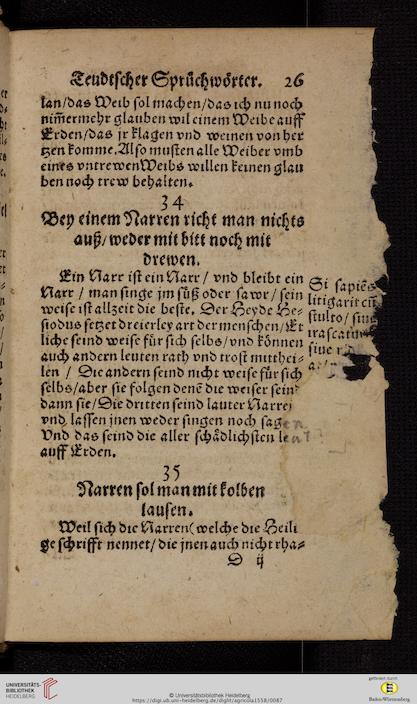 Teudtscher Sprüchwörter. 26
lan/das Weib sol machen/das ich nu noch
nim̃ermehr glauben wil einem Weibe auff
Erden/das jr klagen vnd weinen von her
tzen komme. Also musten alle Weiber vmb
eines vntrewen Weibs willen keinen glau
ben noch trew behalten.
34
Bey einem Narren richt man nichts
auß/weder mit bitt noch mit
drewen.
Ein Narr ist ein Narr / vnd bleibt ein
Narr / man singe jm süß oder sawr / sein
weise ist allzeit die beste. Der Heyde He-
siodus setzet dreierley art der menschen/Et
liche seind weise für sich selbs/vnd können
auch andern leuten rath vnd trost mitthei-
len / Die andern seind nicht weise für sich
selbs/aber sie folgen denẽ die weiser sein
dann sie/Die dritten seind lauter Narre
vnd lassen jnen weder singen noch sagen
Vnd das seind die aller schädlichsten le
auff Erden.
Si sapiẽs
litigarit cũ
stulto/
irascatur
siue
35
Narren sol man mit kolben
lausen.
Weil sich die Narren(welche die Heili
ge schrifft nennet/die jnen auch nicht rha-
D ij
UNIVERSITÄTS-
BIBLIOTHEK
HEIDELBERG
© Universitätsbibliothek Heidelberg
https://digi.ub.uni-heidelberg.de/diglit/agricola1558/0087
gefördert durch
Baden-Württemberg